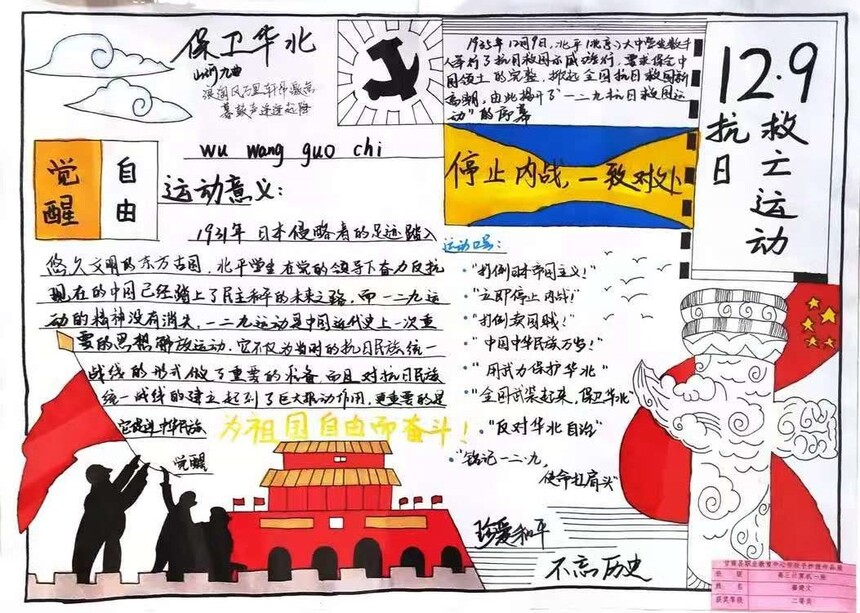 保卫华北
山河九曲
浪淘风
暮鼓声
wu wang guo chi
1935年12月9日,北平(北京)大中学生数千
人举行了抗日救国示威游行,要求保全中
国领土的完整,掀起全国抗日救国新
高潮,由此揭开了“一二九抗日救国运
动”的序幕
12.9
抗日
救亡运动
觉醒
自由
停止内战,一致对外
运动意义:
1931年日本侵略者的足迹踏入
悠久文明的东方古国,北平学生在党的领导下奋力反抗
现在的中国已经踏上了民主和平的未来之路,而一二九运
动的精神没有消失,一二九运动是中国近代史上一次重
要的思想解放运动,它不仅为当时的抗日民族统一
战线的形式做了重要的准备而且对抗日民族
统一战线的建立起到了巨大推动作用,更重要的是
它促进中华民族
觉醒
运动口号:
“打倒日本帝国主义!”
“立即停止内战!”
“打倒卖国贼!”
“中国中华民族万岁!”
“用武力保护华北”
“全国武装起来,保卫华北”
“反对华北自治”
“铭记一二·九,
使命扛肩头”
为祖国自由而奋斗!
珍爱和平
不忘历史
班级 高三计算机一班
姓名
获奖等级 二等奖